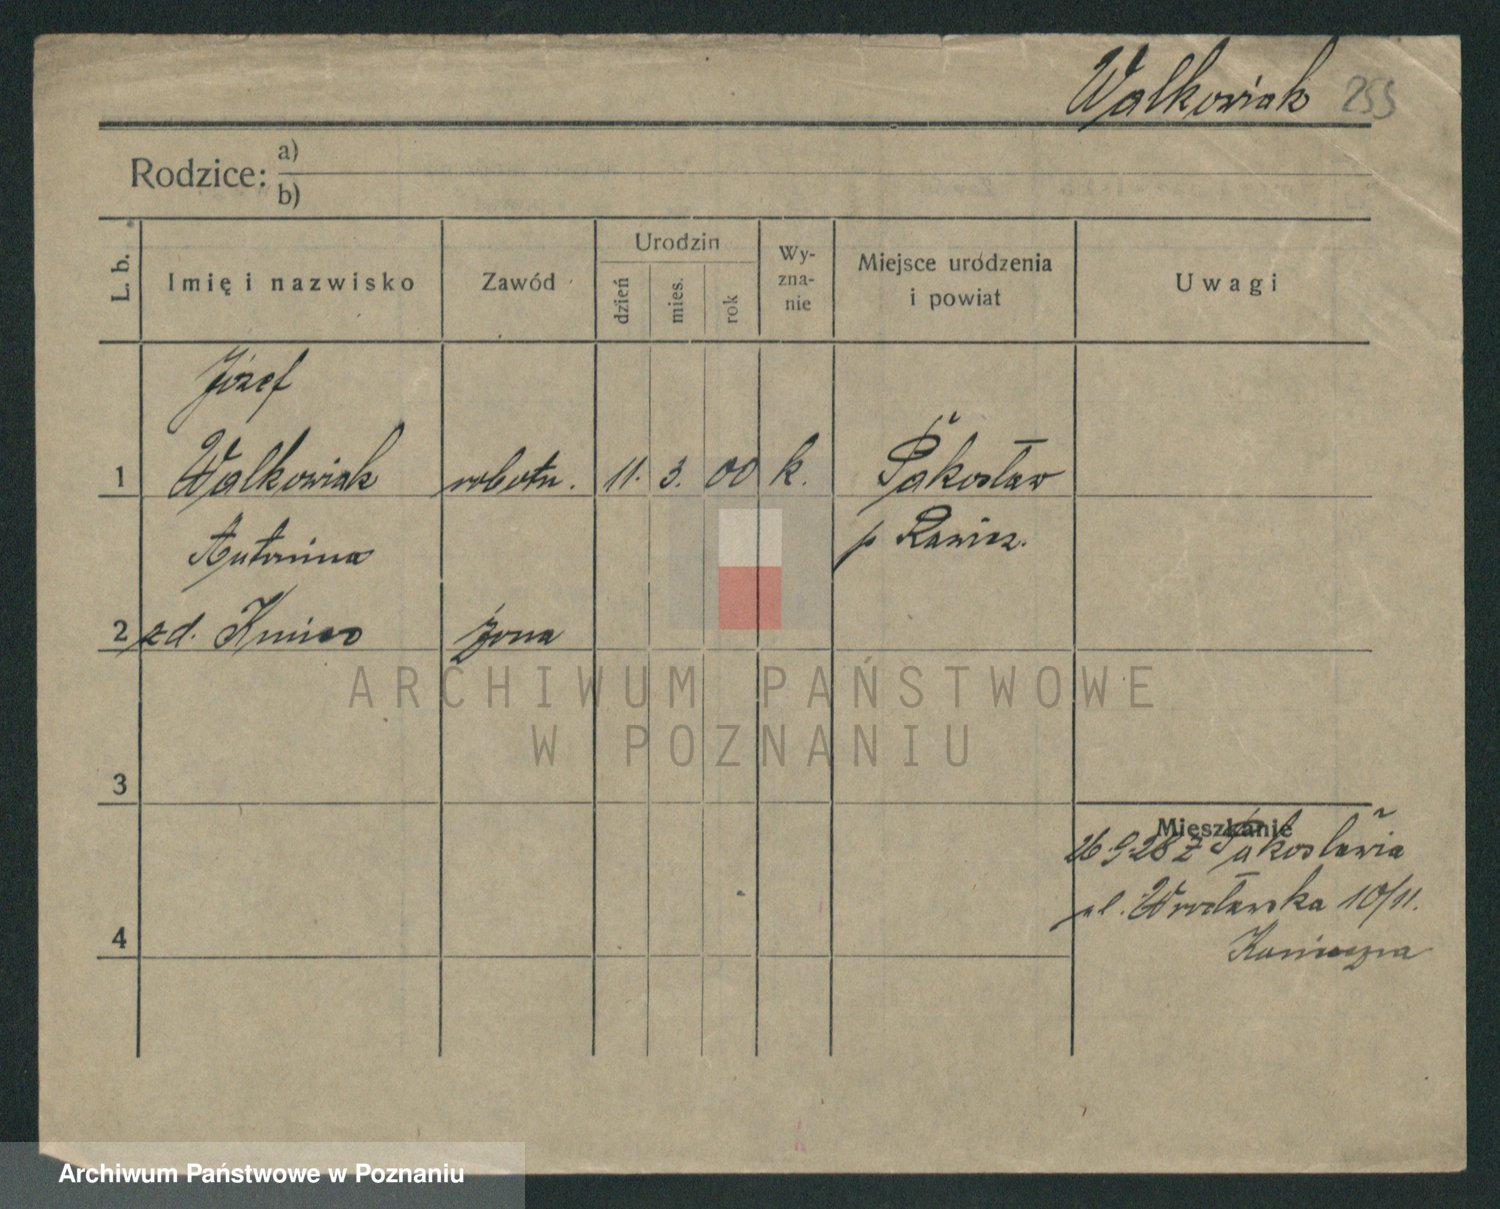 Walkowiak 255
Rodzice: a)
b)
L. b.
Imię i nazwisko
Zawód
Urodzin
dzień
mies.
rok
Wy-
zna-
nie
Miejsce urodzenia
i powiat
Uwagi
Józef
1 Walkowiak robotn. 11. 3. 00 k. Pakosław
Antonina p Rawicz.
2 zd. Kmiec żona
ARCHIWUM PAŃSTWOWE
W POZNANIU
3
Mieszkanie
26.9.28 z Pakosławia
ul. Wrocławska 10/11.
4
Archiwum Państwowe w Poznaniu